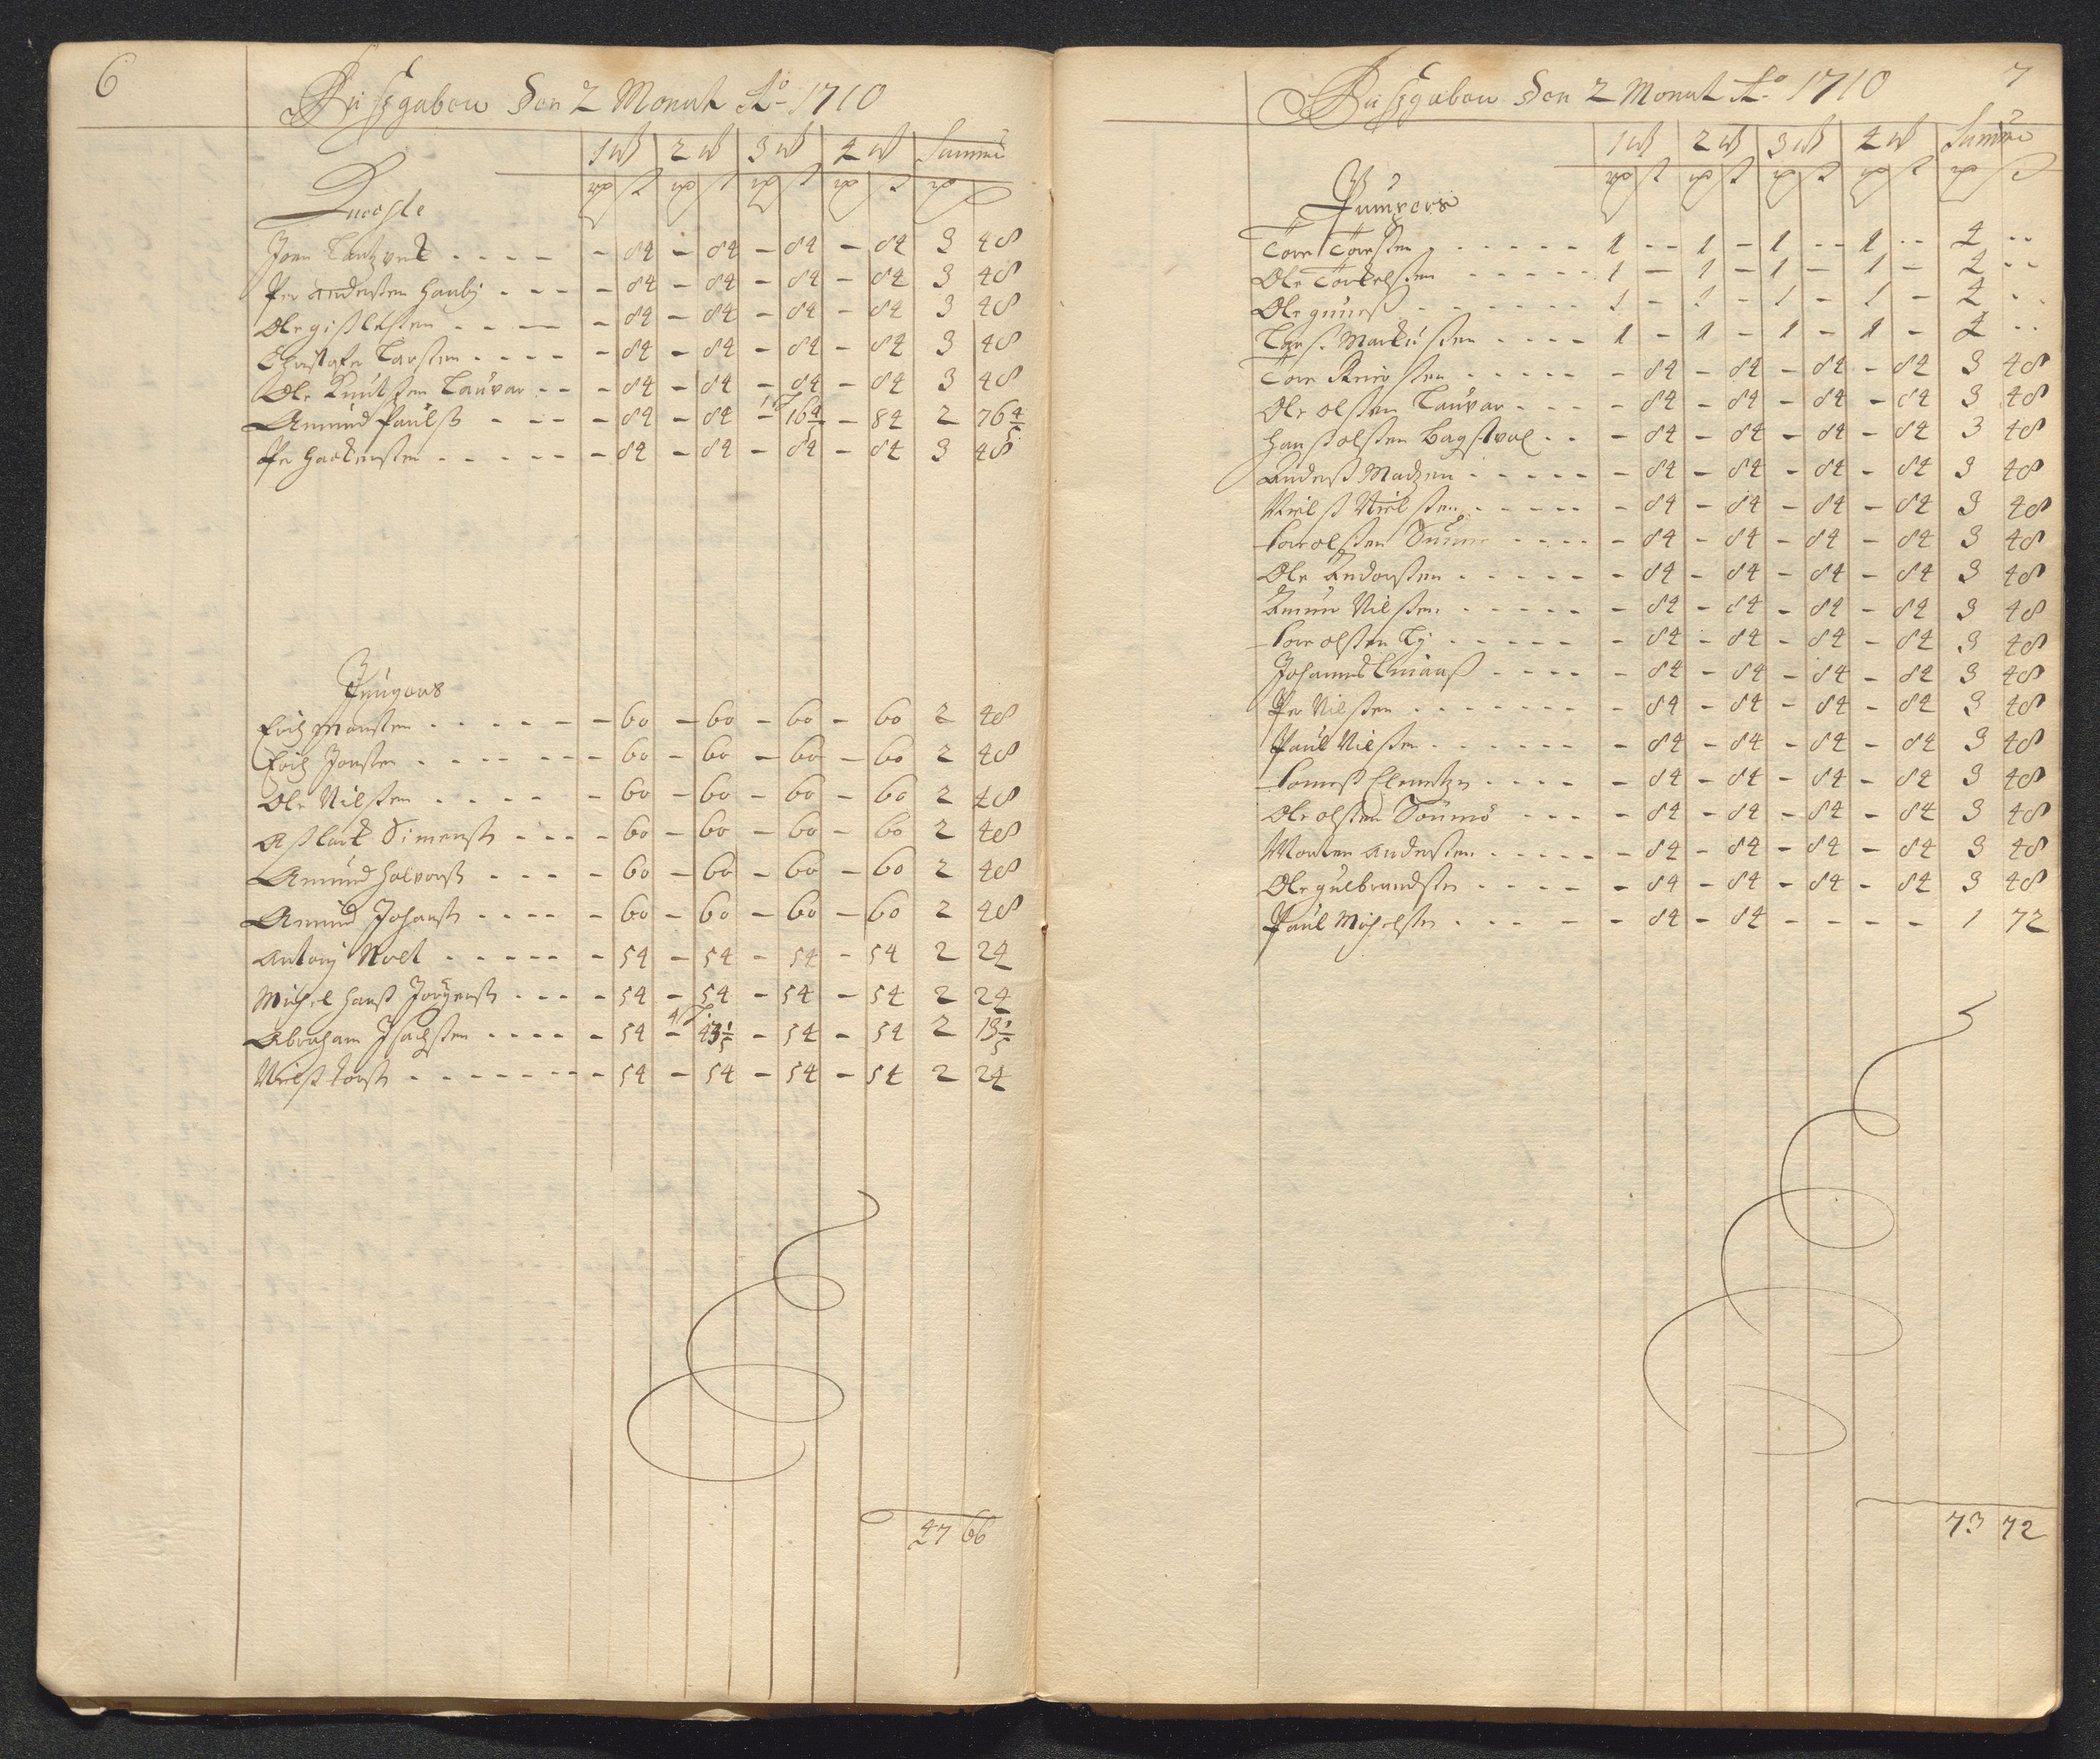 6
Außgaben Den 2 Monat Ao 1710
1 W 2 W 3 W 4 W Summa
rp ß rp ß rp ß rp ß rp ß
Knechte
Joen - 84 - 84 - 84 - 84 3 48
Per Andersten Hauby - 84 - 84 - 84 - 84 3 48
Ole gißleßten - 84 - 84 - 84 - 84 3 48
Christofer Larsten - 84 - 84 - 84 - 84 3 48
Ole Knutsten Lauvar - 84 - 84 - 84 - 84 3 48
Amund Paulß - 84 - 84 - 16 4/5 - 84 2 76 4/5
Per Hackensten - 84 - 84 - 84 - 84 3 48
Jungens
Erich Monsten - 60 - 60 - 60 - 60 2 48
Erich Jonsten - 60 - 60 - 60 - 60 2 48
Ole Nilsten - 60 - 60 - 60 - 60 2 48
Aßlack Simenst - 60 - 60 - 60 - 60 2 48
Amund Halvorst - 60 - 60 - 60 - 60 2 48
Amund Johanst - 60 - 60 - 60 - 60 2 48
Antony Rolt - 54 - 54 - 54 - 54 2 24
Michel Hanß Jörgenst - 54 - 54 - 54 - 54 2 24
Abraham Isachsten - 54 - 43 1/5 - 54 - 54 2 13 1/5
Nielß Torst - 54 - 54 - 54 - 54 2 24
47 66
7
Außgaben Den 2 Monat Ao 1710
1 W 2 W 3 W 4 W Summa
rp ß rp ß rp ß rp ß rp ß
Pumpers
Tore Torsten 1 - 1 - 1 - 1 - 4 -
Ole Torkelsten 1 - 1 - 1 - 1 - 4 -
Ole gunerß 1 - 1 - 1 - 1 - 4 -
Larß Markusten 1 - 1 - 1 - 1 - 4 -
Tore - 84 - 84 - 84 - 84 3 48
Ole olsten Lauvar - 84 - 84 - 84 - 84 3 48
Hanß olsten Bagstvol - 84 - 84 - 84 - 84 3 48
Anderß Madzen - 84 - 84 - 84 - 84 3 48
Nielß Nielsten - 84 - 84 - 84 - 84 3 48
Tore olsten - 84 - 84 - 84 - 84 3 48
Ole Andersten - 84 - 84 - 84 - 84 3 48
Amun Nilsten - 84 - 84 - 84 - 84 3 48
Tore olsten Ly - 84 - 84 - 84 - 84 3 48
Johannes - 84 - 84 - 84 - 84 3 48
Per Nilsten - 84 - 84 - 84 - 84 3 48
Paul Nilsten - 84 - 84 - 84 - 84 3 48
Tomeß Clemetzn - 84 - 84 - 84 - 84 3 48
Ole olsten - 84 - 84 - 84 - 84 3 48
Morten Andersten - 84 - 84 - 84 - 84 3 48
Ole gulbrandstn - 84 - 84 - 84 - 84 3 48
Paul Michelstn - 84 - 84 - - - - 1 72
73 72